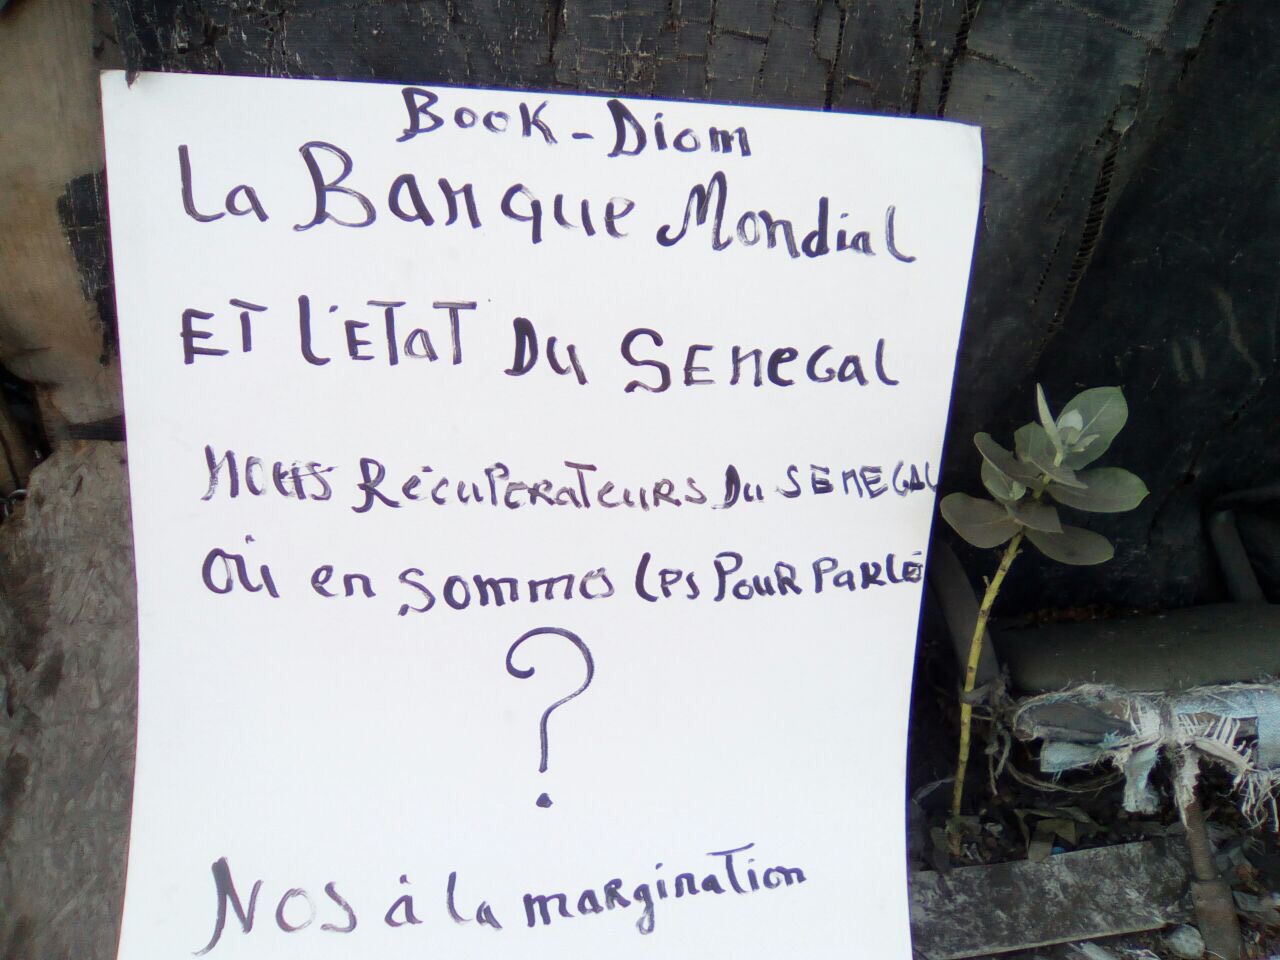 Book-Diom
La Banque Mondial
ET L'ETaT Du SENeGaL
NOUS RécuPERaTeuRS Du SENEGAL
Où en Sommo Les PouR PaRLé
?
NOS à la margination